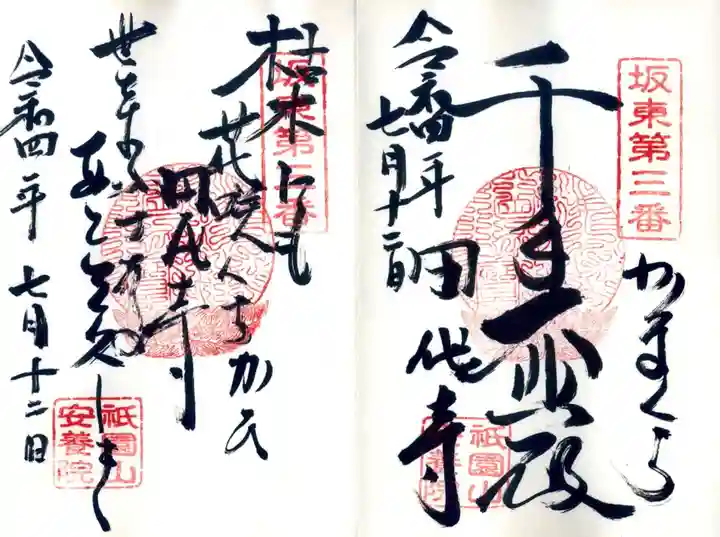 坂東第三番
かまくら
千手大悲殿
田代寺
令和四年
七月十二日
祇園山
安養院
坂東第三番
枯木にも
花咲くちかひ
田代寺
あとそ久しき
令和四年 七月十二日
祇園山
安養院